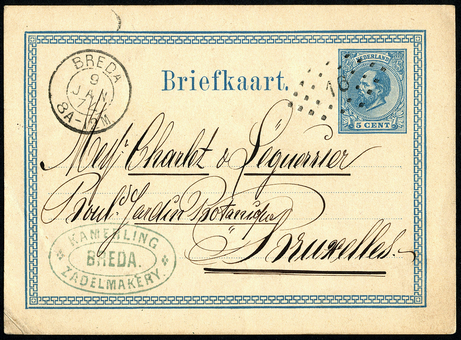 BREDA
9
JAN
74
8A-12M
Briefkaart.
16
NEDERLAND
5 CENT
Mess.rs Charlet & Séquerrier
Boul.d Jardin Botanique
Bruxelles.
KAMERLING
BREDA.
ZADELMAKERY